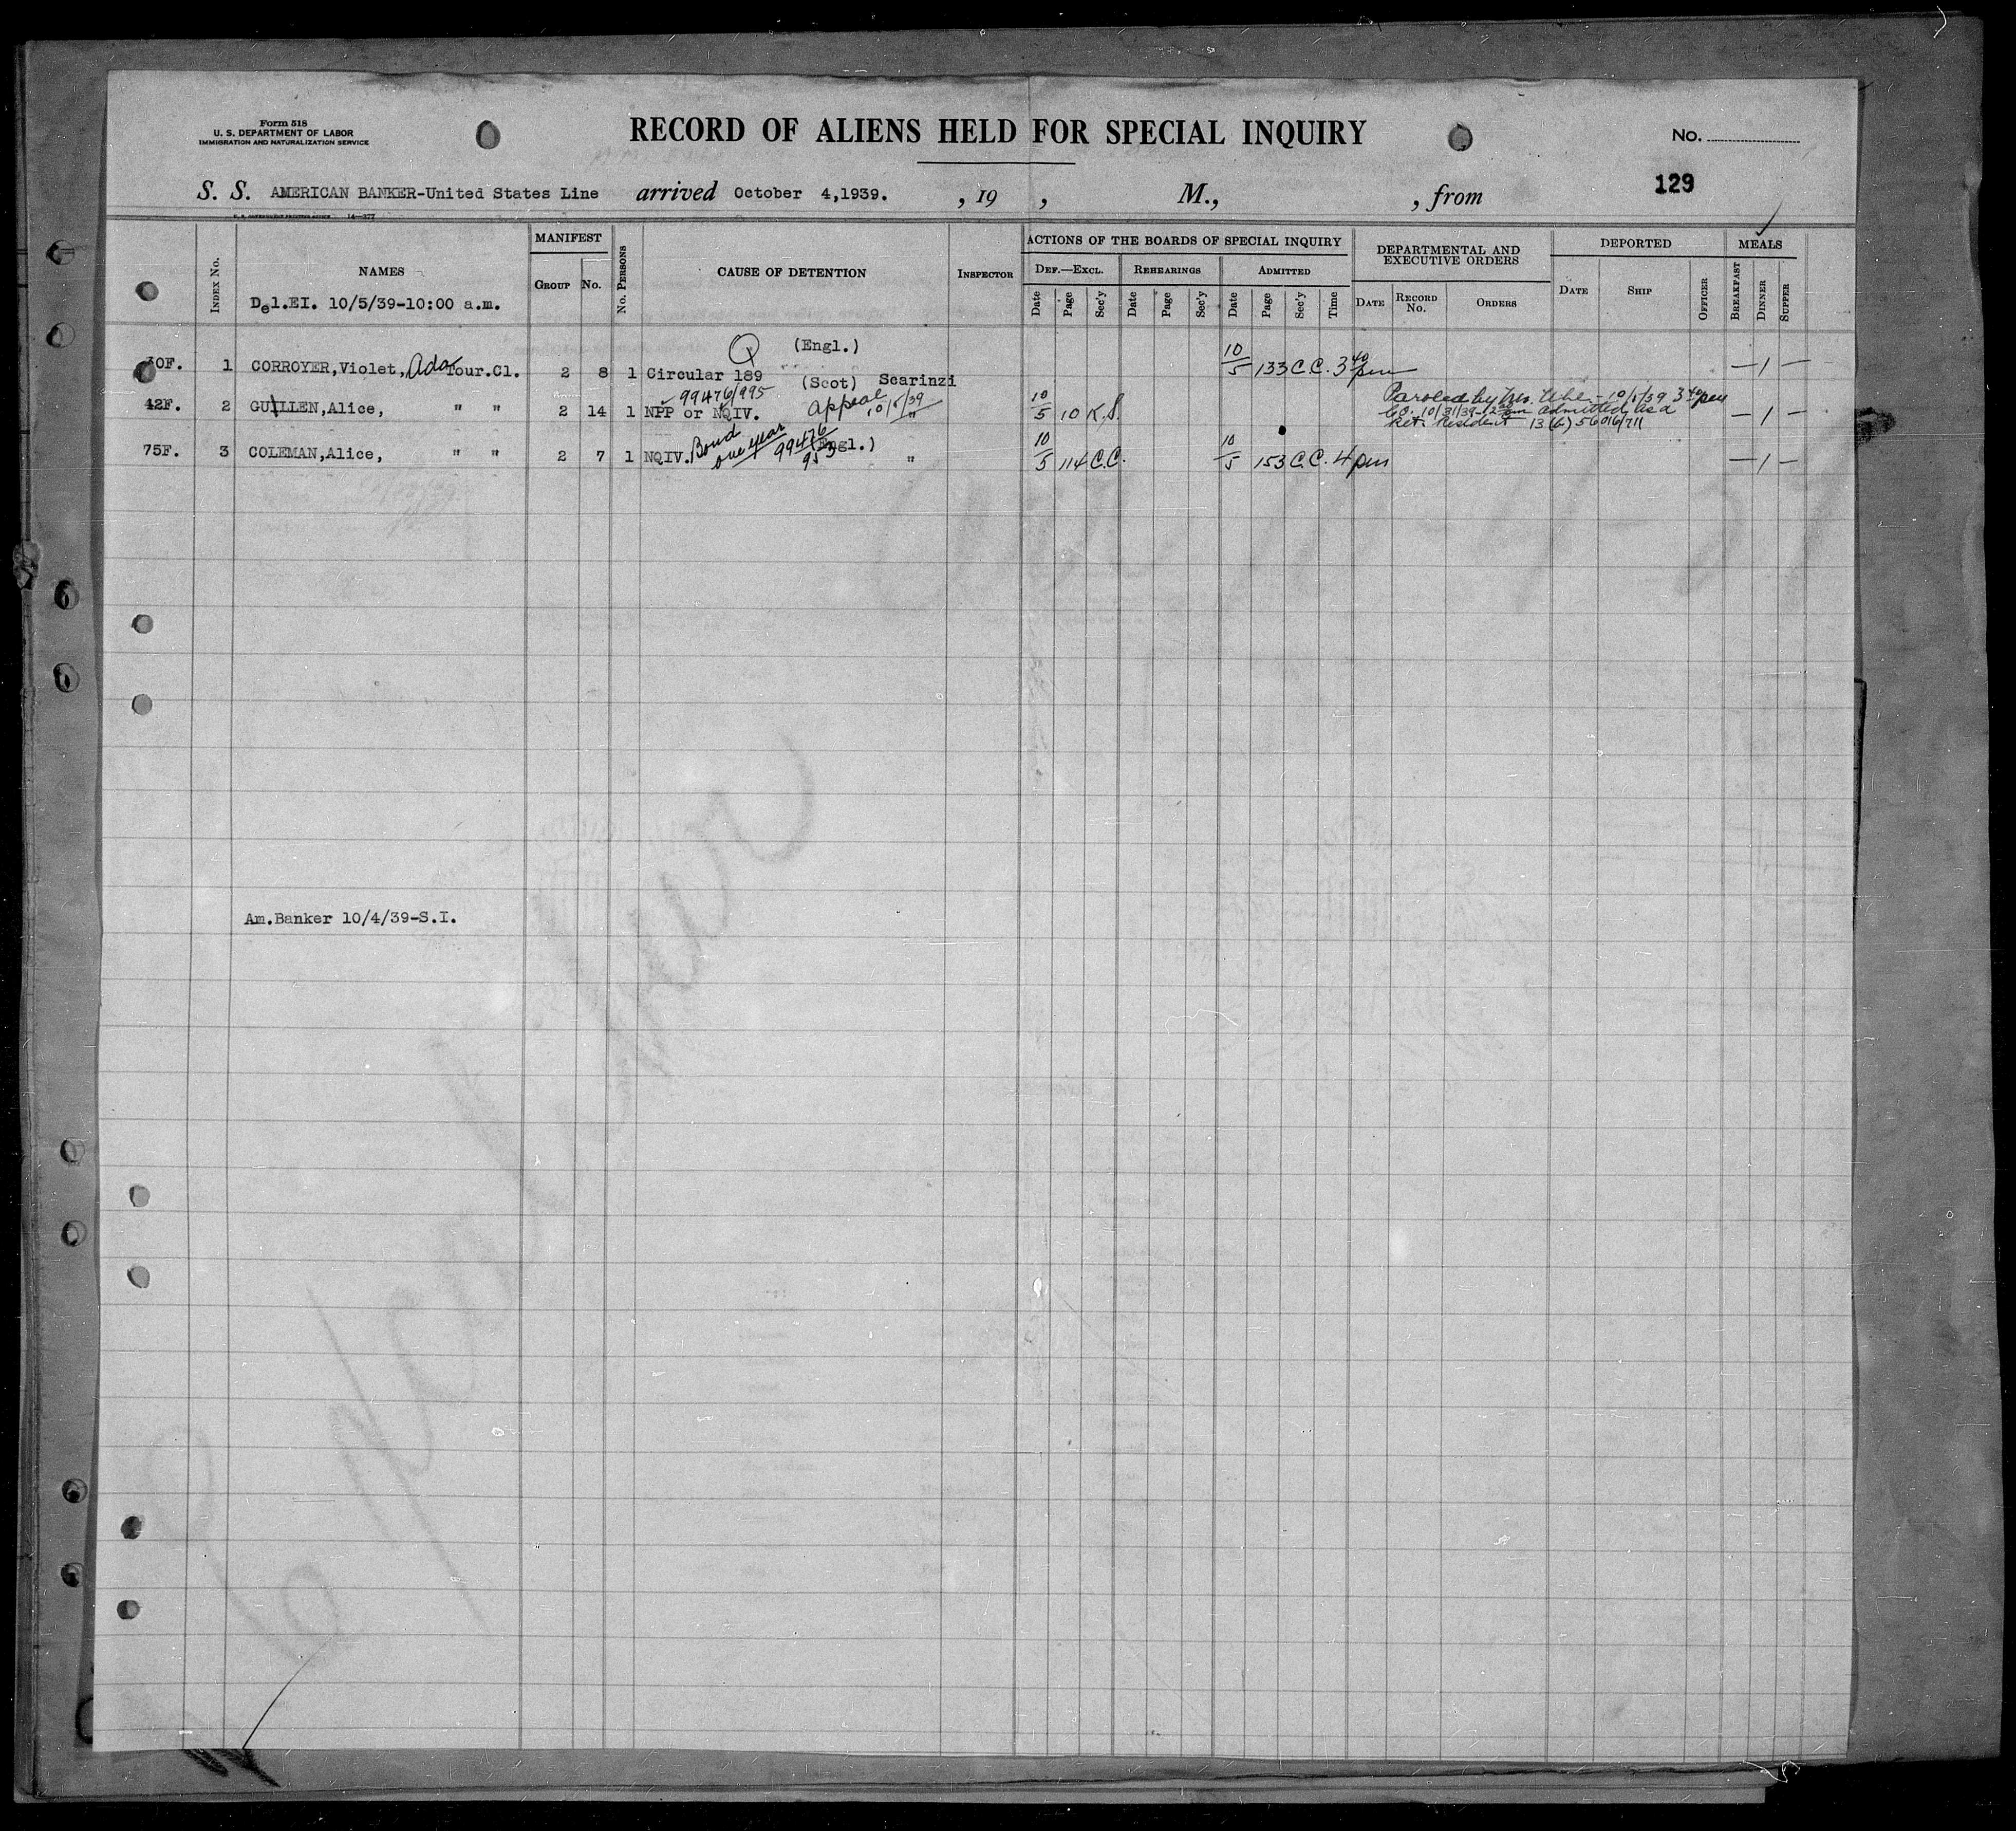 Form 518
U. S. DEPARTMENT OF LABOR
IMMIGRATION AND NATURALIZATION SERVICE
RECORD OF ALIENS HELD FOR SPECIAL INQUIRY
No.
129
S. S. AMERICAN BANKER-United States Line arrived October 4,1939. , 19 , M., , from
U. S. GOVERNMENT PRINTING OFFICE 14-377
INDEX No. NAMES MANIFEST GROUP No. No. PERSONS CAUSE OF DETENTION INSPECTOR
ACTIONS OF THE BOARDS OF SPECIAL INQUIRY
DEF.—EXCL. REHEARINGS ADMITTED
Date Page Sec'y Date Page Sec'y Date Page Sec'y Time
DEPARTMENTAL AND EXECUTIVE ORDERS
DATE RECORD No. ORDERS
DEPORTED
DATE SHIP OFFICER
MEALS
BREAKFAST DINNER SUPPER
Del.EI. 10/5/39-10:00 a.m.
Q (Engl.)
30F. 1 CORROYER,Violet, Ada Tour.Cl. 2 8 1 Circular 189 Scarinzi 10/5 133 C.C. 3 40 pm — 1 —
99476/995 (Scot) Appeal 10/5/39
42F. 2 GUILLEN,Alice, " " 2 14 1 NPP or NQIV. " 10/5 10 K.S. — 1 —
Paroled by Mr. Uhl - 10/5/39 3 40 pm
10/31/39 admitted as a
Ret. Resident 13(b) 56016/711
Bond one year 99476/953 (Engl.)
75F. 3 COLEMAN,Alice, " " 2 7 1 NQIV. " 10/5 114 C.C. 10/5 153 C.C. 4 pm — 1 —
Am.Banker 10/4/39-S.I.